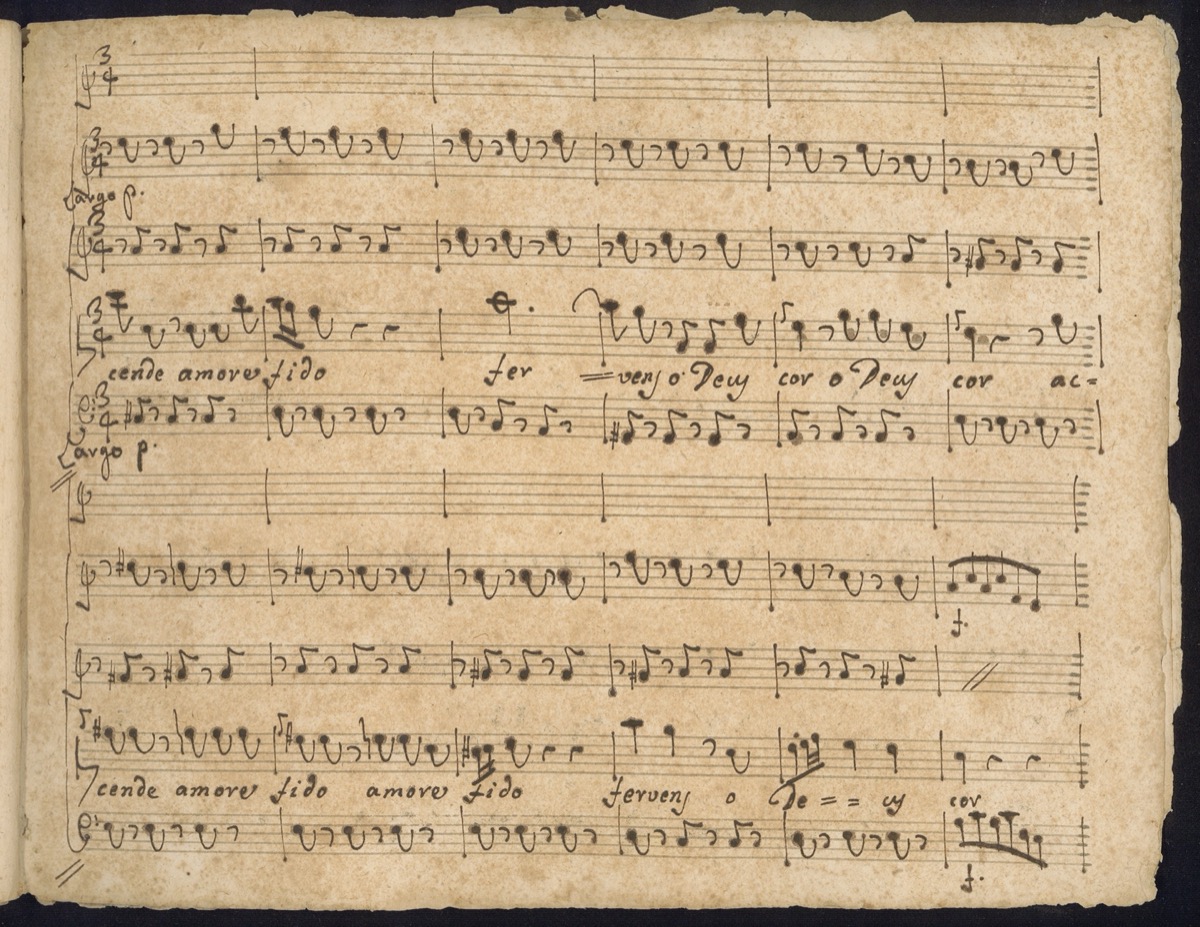 3 4
3 4
Largo p.
3 4
3 4
cende amore fido fer = vens o Deus cor o Deus cor ac=
3 4
Largo p.
f.
cende amore fido amore fido fervens o De = = us cor
f.